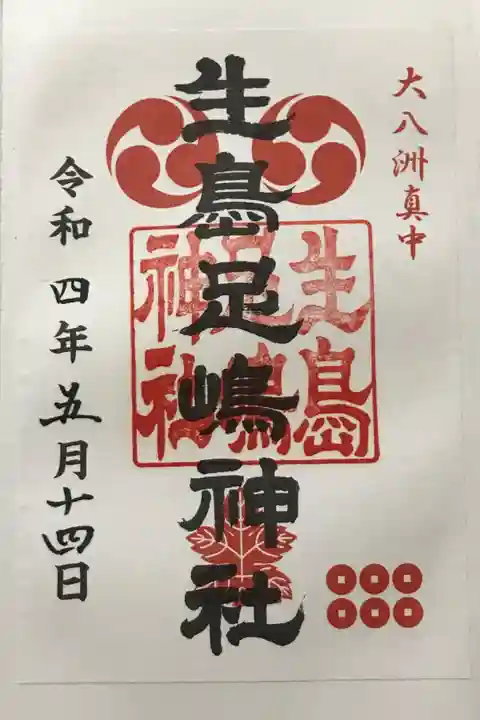 大八洲真中
生島足嶋神社
生島
足嶋
神社
令和四年五月十四日